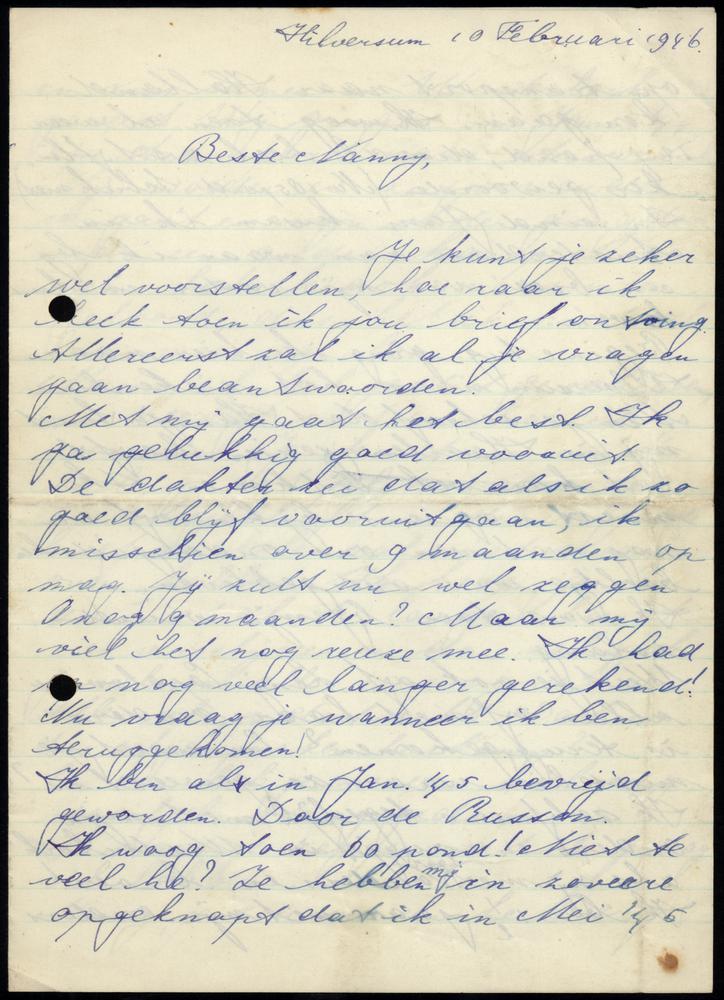 Hilversum 10 Februari 1946.
Beste Nanny,
Je kunt je zeker
wel voorstellen, hoe raar ik
keek toen ik jou brief ontving.
Allereerst zal ik al je vragen
gaan beantwoorden.
Met mij gaat het best. Ik
ga gelukkig goed vooruit.
De dokter zei dat als ik zo
goed blijf vooruitgaan, ik
misschien over 9 maanden op
mag. Jij zult nu wel zeggen
O nog 9 maanden? Maar mij
viel het nog reuze mee. Ik had
nog veel langer gerekend!
Nu vraag je wanneer ik ben
teruggekomen!
Ik ben als in Jan. '45 bevrijd
geworden. Door de Russen.
Ik woog toen 60 pond! Niet te
veel he? Ze hebben mij in zoverre
opgeknapt dat ik in Mei '45